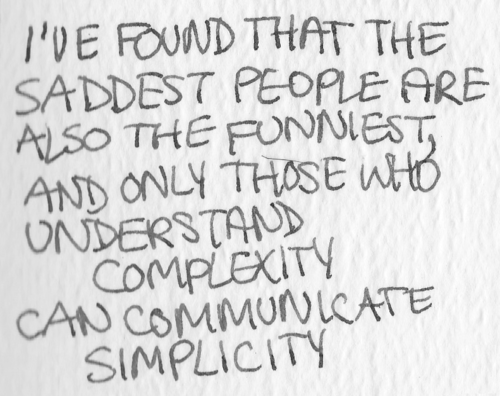 I'VE FOUND THAT THE
SADDEST PEOPLE ARE
ALSO THE FUNNIEST,
AND ONLY THOSE WHO
UNDERSTAND
COMPLEXITY
CAN COMMUNICATE
SIMPLICITY